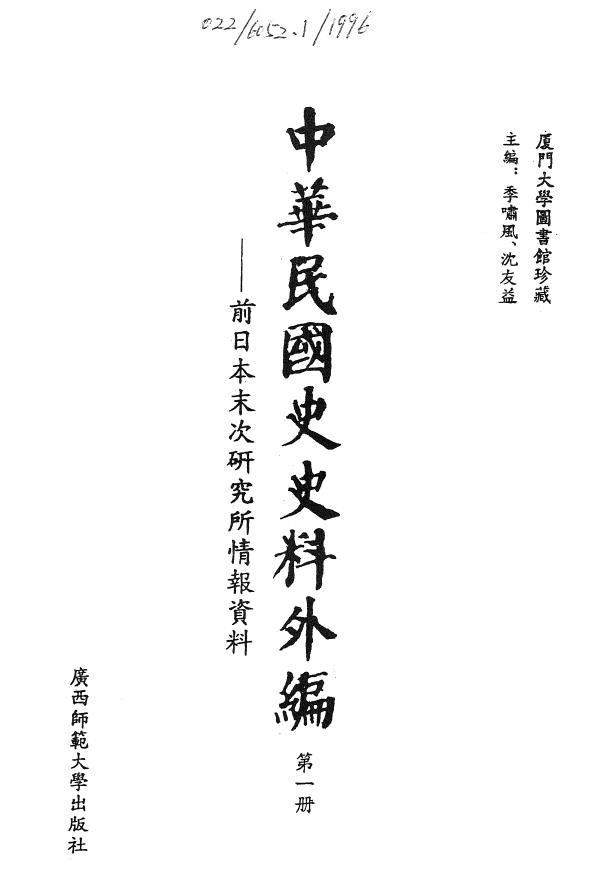 022/6052.1/1996
厦門大學圖書館珍藏
主編：季嘯風、沈友益
中華民國史史料外編
——前日本末次研究所情報資料
第一册
廣西師範大學出版社